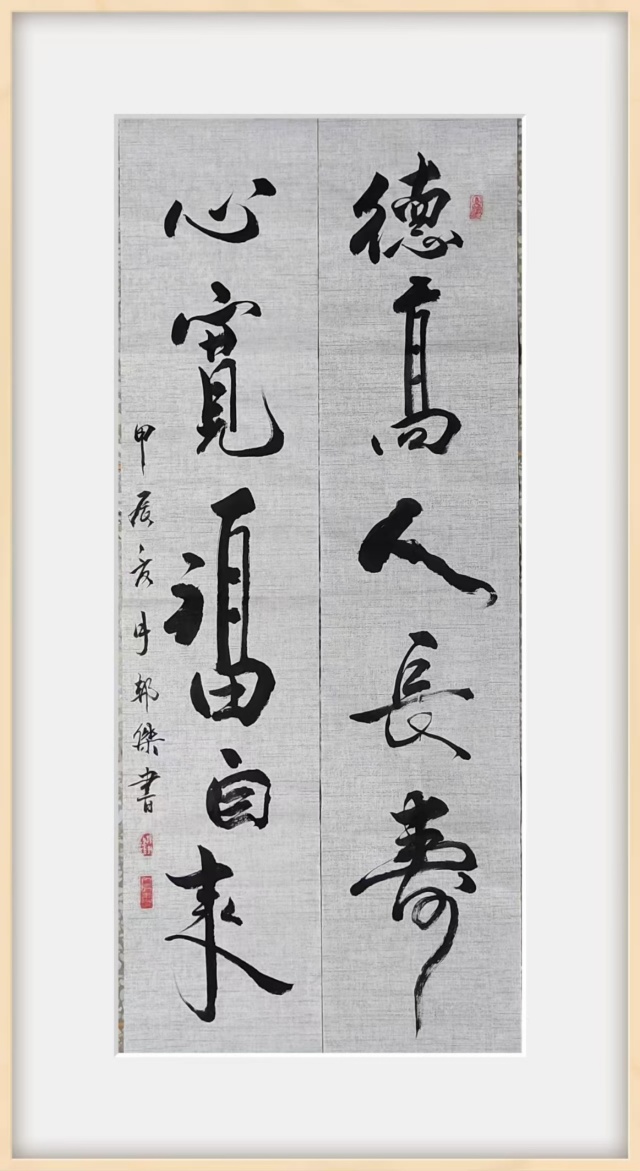 德高人長壽
心寬福自来
甲辰亥月邦傑書